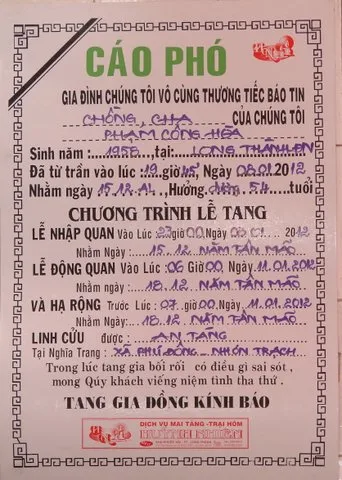 CÁO PHÓ
GIA ĐÌNH CHÚNG TÔI VÔ CÙNG THƯƠNG TIẾC BÁO TIN
CHỒNG, CHA CỦA CHÚNG TÔI
PHẠM CÔNG HÒA
Sinh năm : 1958, tại: LONG THÀNH-ĐN
Đã từ trần vào lúc : 19 giờ 45, Ngày 08.01.2012
Nhằm ngày 15.12 ÂL, Hưởng 54 tuổi
CHƯƠNG TRÌNH LỄ TANG
LỄ NHẬP QUAN Vào Lúc : 22 giờ 00, Ngày 01 2012
Nhằm Ngày : 15.12 NĂM TÂN MÃO
LỄ ĐỘNG QUAN Vào Lúc : 06 Giờ 00 Ngày. 11.01.2012
Nhằm Ngày : 18.12 NĂM TÂN MÃO
VÀ HẠ RỘNG Trước Lúc : 07 giờ 00, Ngày 11.01.2012
Nhằm Ngày : 18.12 NĂM TÂN MÃO
LINH CỮU được : AN TÁNG
Tại Nghĩa Trang : XÃ PHÚ ĐÔNG - NHƠN TRẠCH
Trong lúc tang gia bối rối có điều gì sai sót,
mong Qúy khách viếng niệm tình tha thứ.
TANG GIA ĐỒNG KÍNH BÁO
DỊCH VỤ MAI TÁNG - TRẠI HÒM